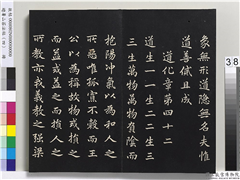 象無形道隱無名夫惟
道善貸且成
道化章第四十二
道生一一生二二生三
三生萬物萬物負陰而
抱陽沖氣以為和人之
所惡唯孤寡不穀而王
公以為稱故物或損之
而益或益之而損人之
所教亦我義教之強梁
38